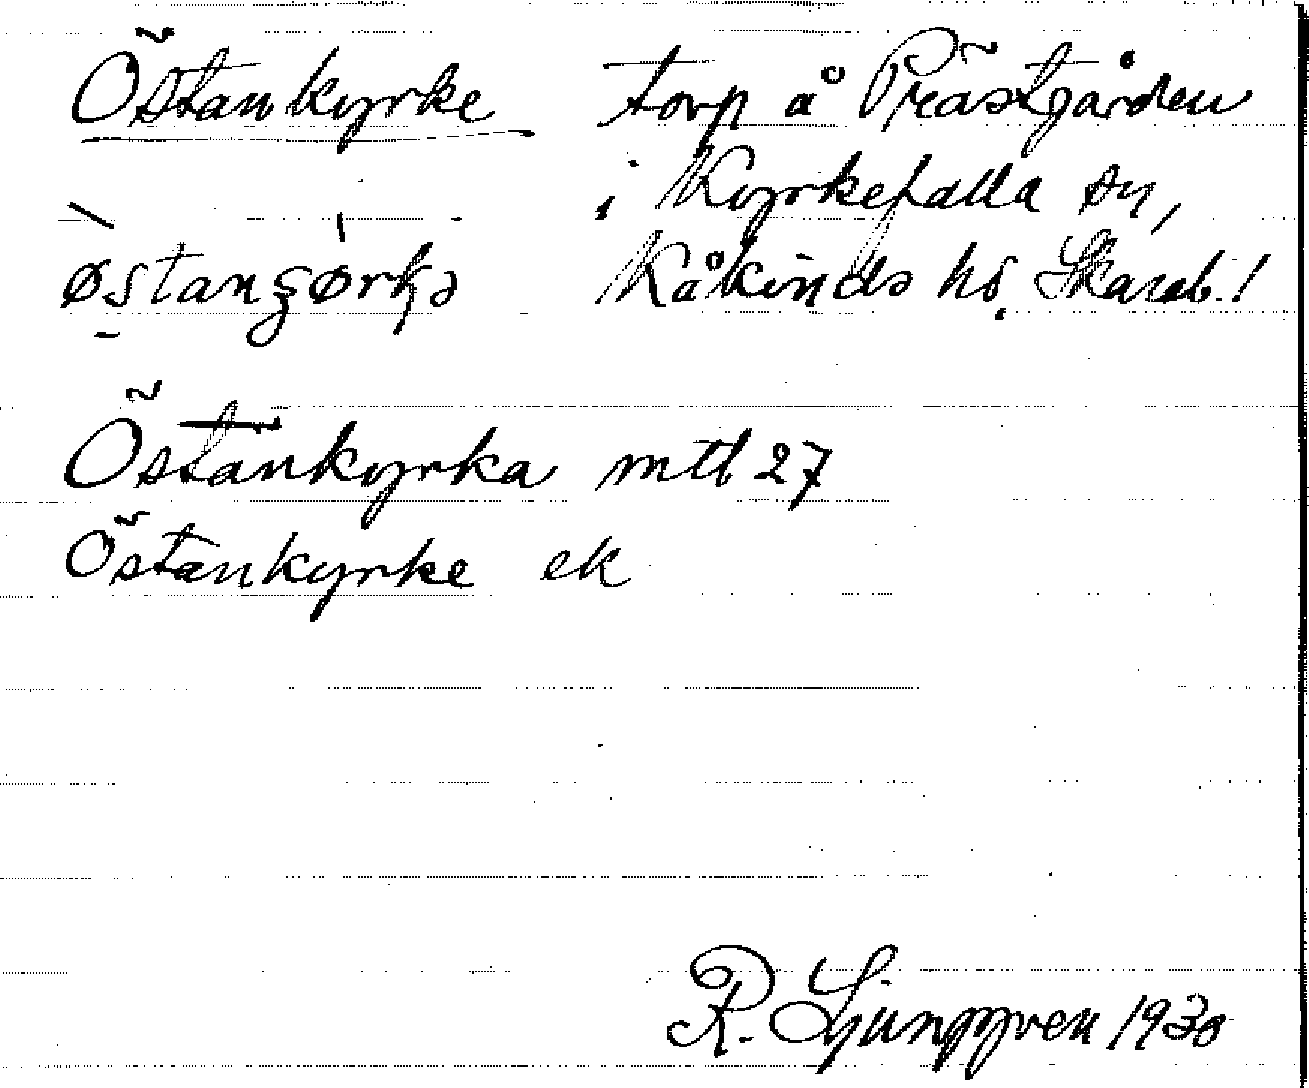 Östankyrke torp å Prästgården
i Kyrkefalla sn,
Kåkinds hd. Skarab. l
Östankyrka mtl 27
Östankyrke ek
R. Ljunggren 1930